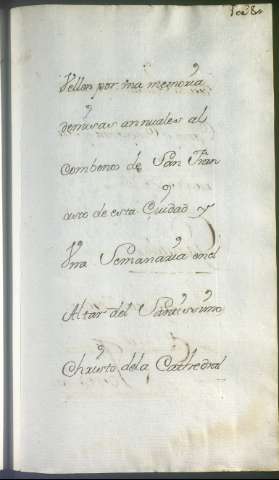 Vellon por una memoria
demisas annuales al
combento de San Fran
cisco de esta Ciudad y
Vna Semanaria enel
Altar del Santissimo
Christo dela Cathedral